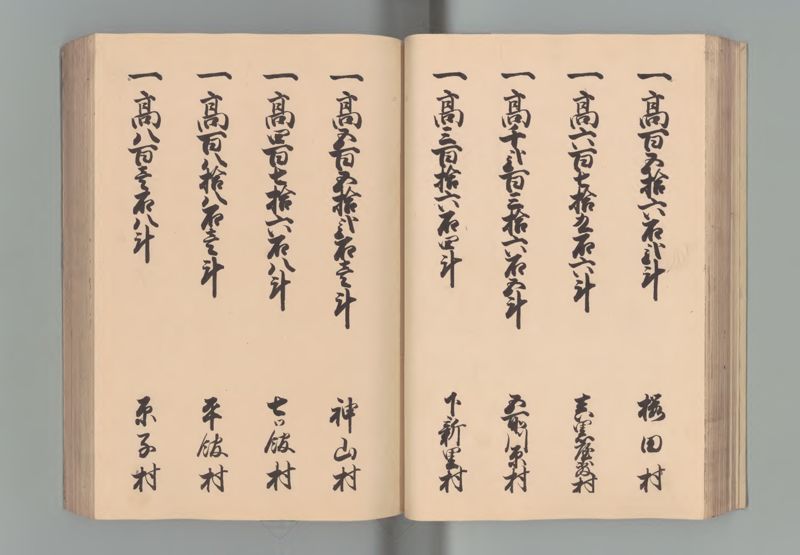 一高百五拾六石弐斗 桜田村
一高六百七拾五石六斗
一高千弐百三拾六石五斗 五所川原村
一高三百拾六石四斗 下新里村
一高五百五拾弐石壱斗 神山村
一高四百七拾六石八斗 七ツ館村
一高百八拾八石壱斗 平館村
一高八百壱石八斗 原子村